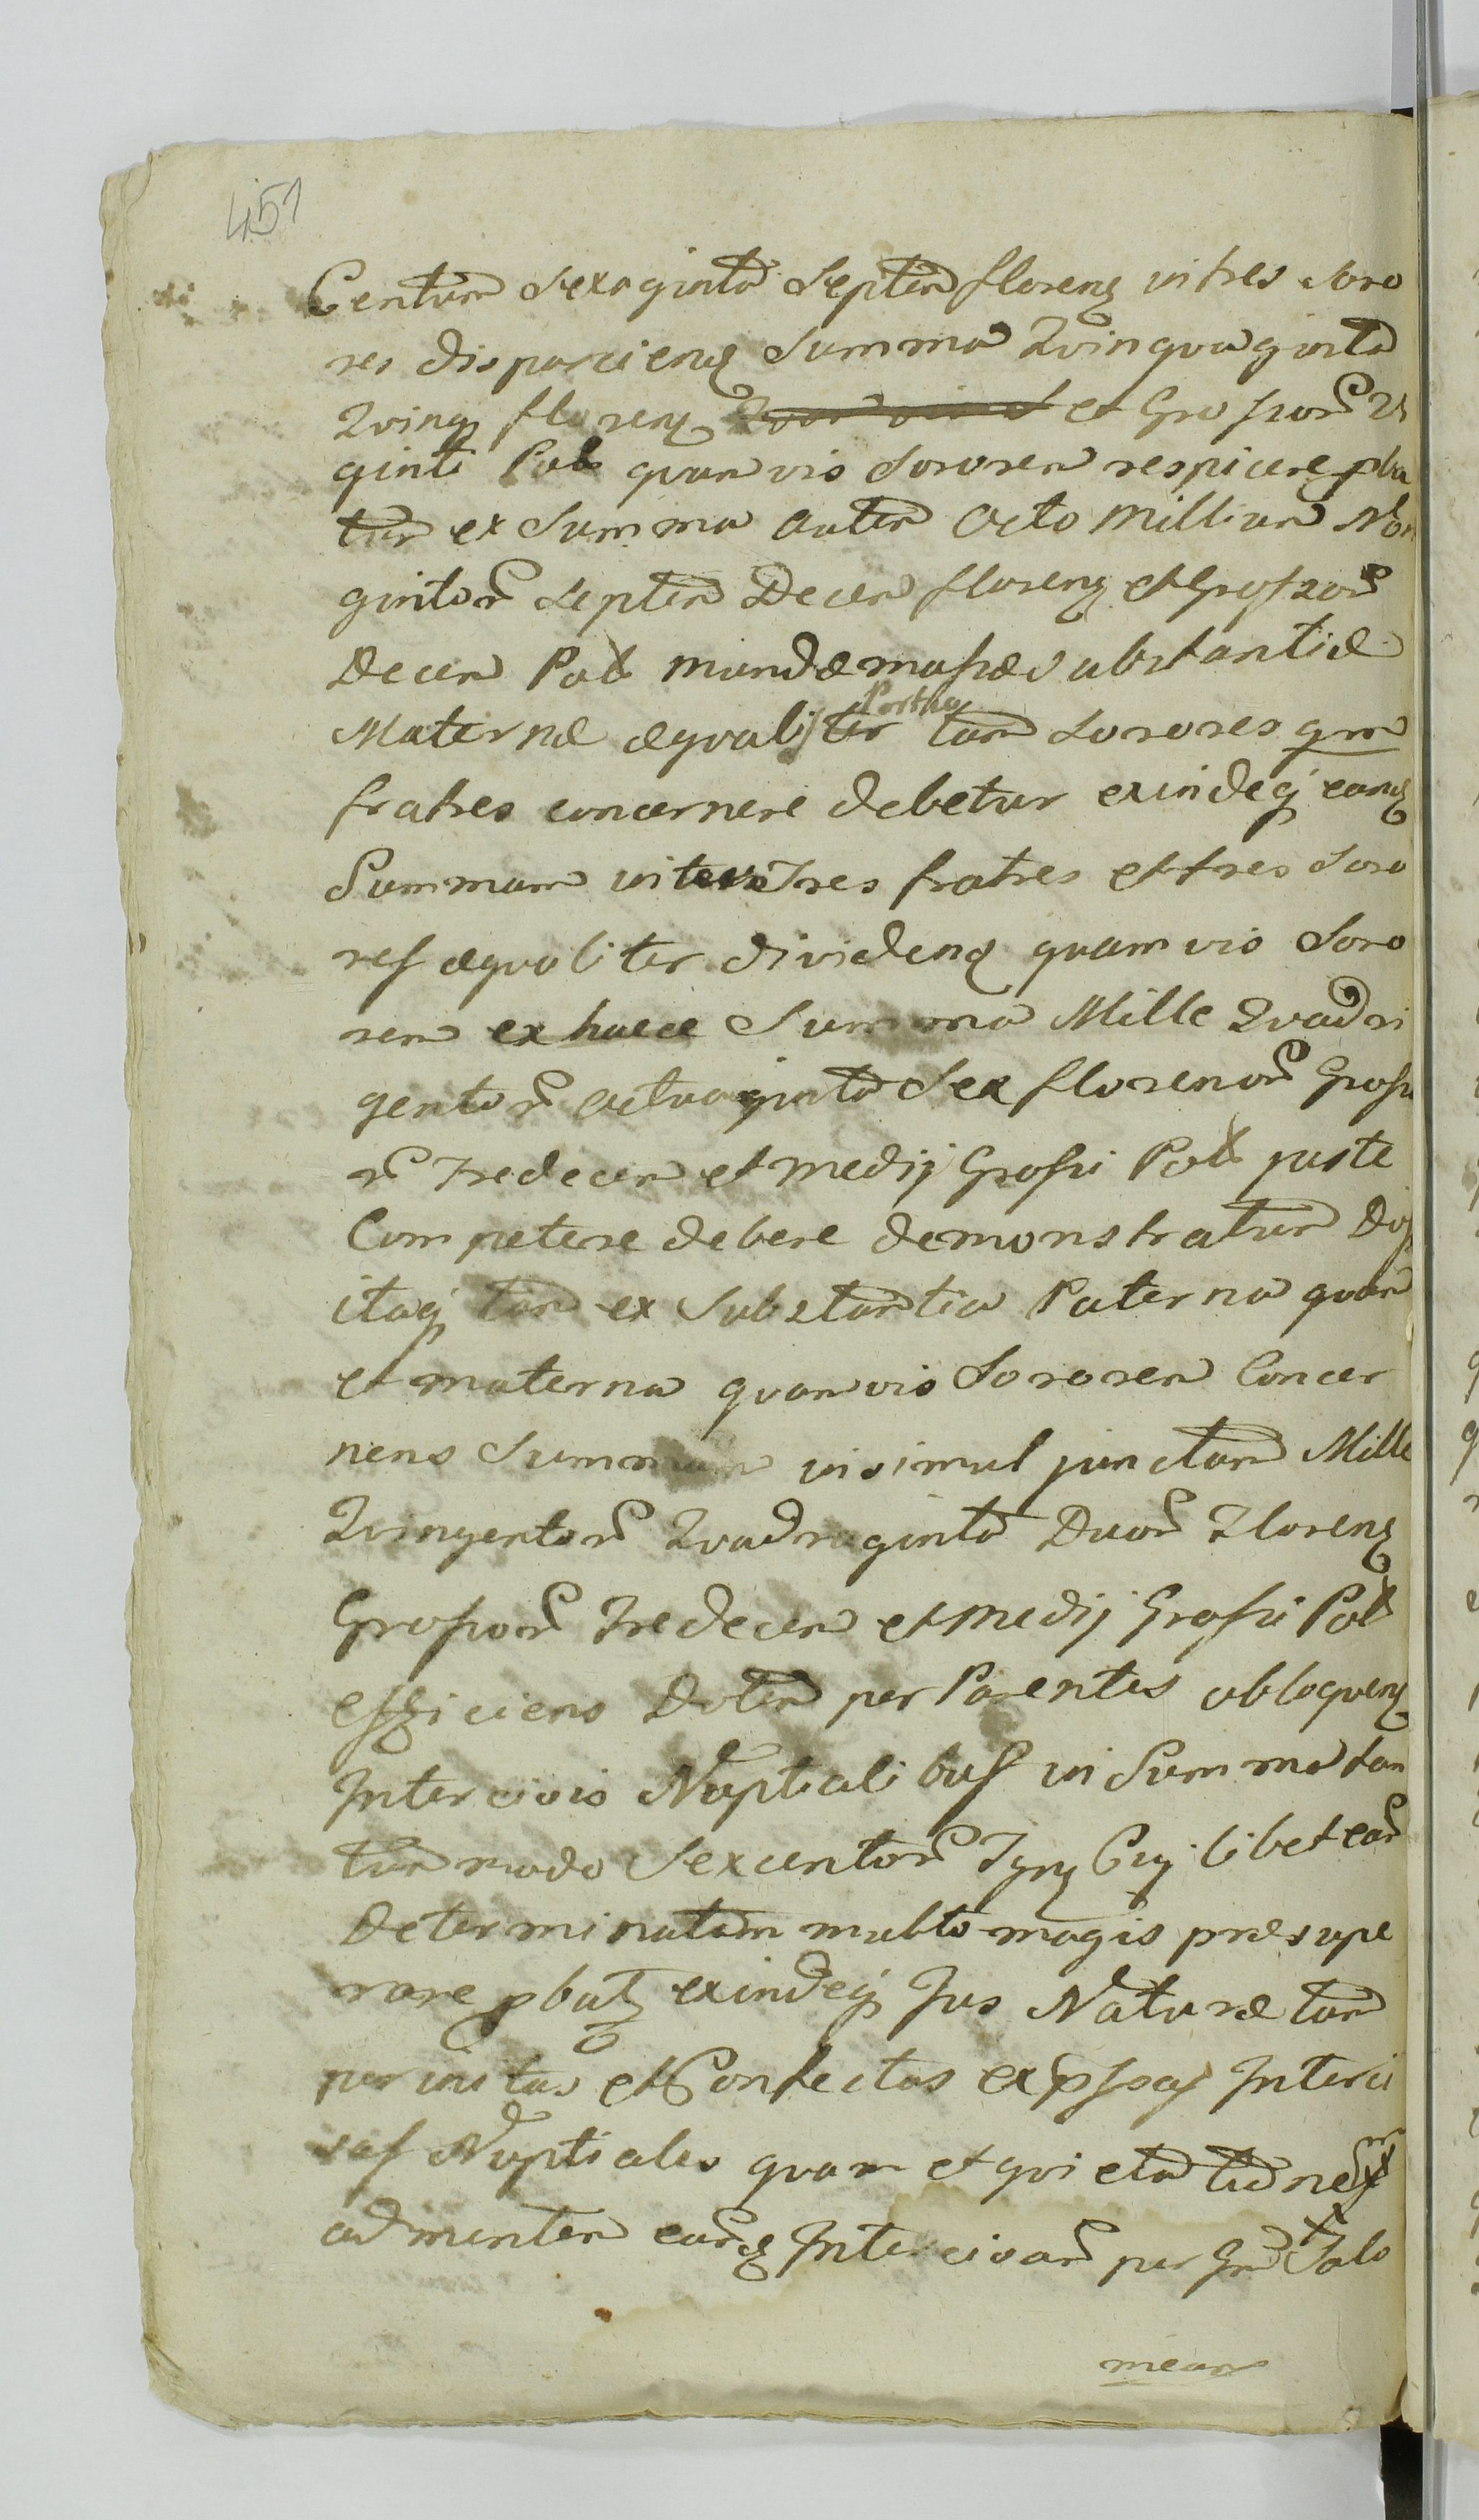 451
Centum Sexaginta Septem florenꝫ in tres Soro
res disparcienꝫ Summa Quinquaginta
Quinqꝫ florenꝫ et Grossorꝝ Vi
ginti Pol quamvis Sororem respicere pba
tur ex Summa autem Octo Millium Non
gintorꝝ Septem Decem florenꝫ et Grossorꝝ
Decem Pol mundæ massæ substantiæ
Maternæ æqvaliter tam Sorores qm
fratres concernere debetur exindeqꝫ eanꝫ
Summam inter Tres fratres et tres Soro
res æqvaliter dividenꝫ quamvis Soro
rem ex haece Summa Mille Quadri
gentorꝝ Octuaginta Sex florenorꝝ Grosso
rꝝ Tredecem et medij Grossi Pol juste
Competere debere demonstratur
itaqꝫ tam ex Substantia Paterna quam
et materna quamvis Sororem Concer
nens Summam insimul junctam Mille
Quingentorꝝ Quadraginta Duorꝝ Florenꝫ
Grossorꝝ Tredecem et medij Grossi Pol
efficiens Dotem per Parentes obloquenꝫ
Intercivis Nuptialibus in Summa tan
tum modo Sexcentorꝝ libet earꝝ
Determinatam multo magis præsupe
rare pbatꝫ exindeqꝫ Jus Naturæ tam
per initas et Confectas Interci
sas Nuptiales quam et
ad mentem Intercisarꝝ per
mean